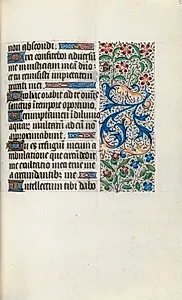 non abscondi
Dixi confitebor adversum
me iniusticiam meam dno
et tu remisisti impietatem
peccati mei
Pro hac orabit ad te omnis
sanctus in tempore oportuno
Verumptamen in diluvio
aquarum multarum ad eum non
approximabunt
Tu es refugium meum a
tribulatione que circundedit
me exultatio mea erue me
a circundantibus me
Intellectum tibi dabo